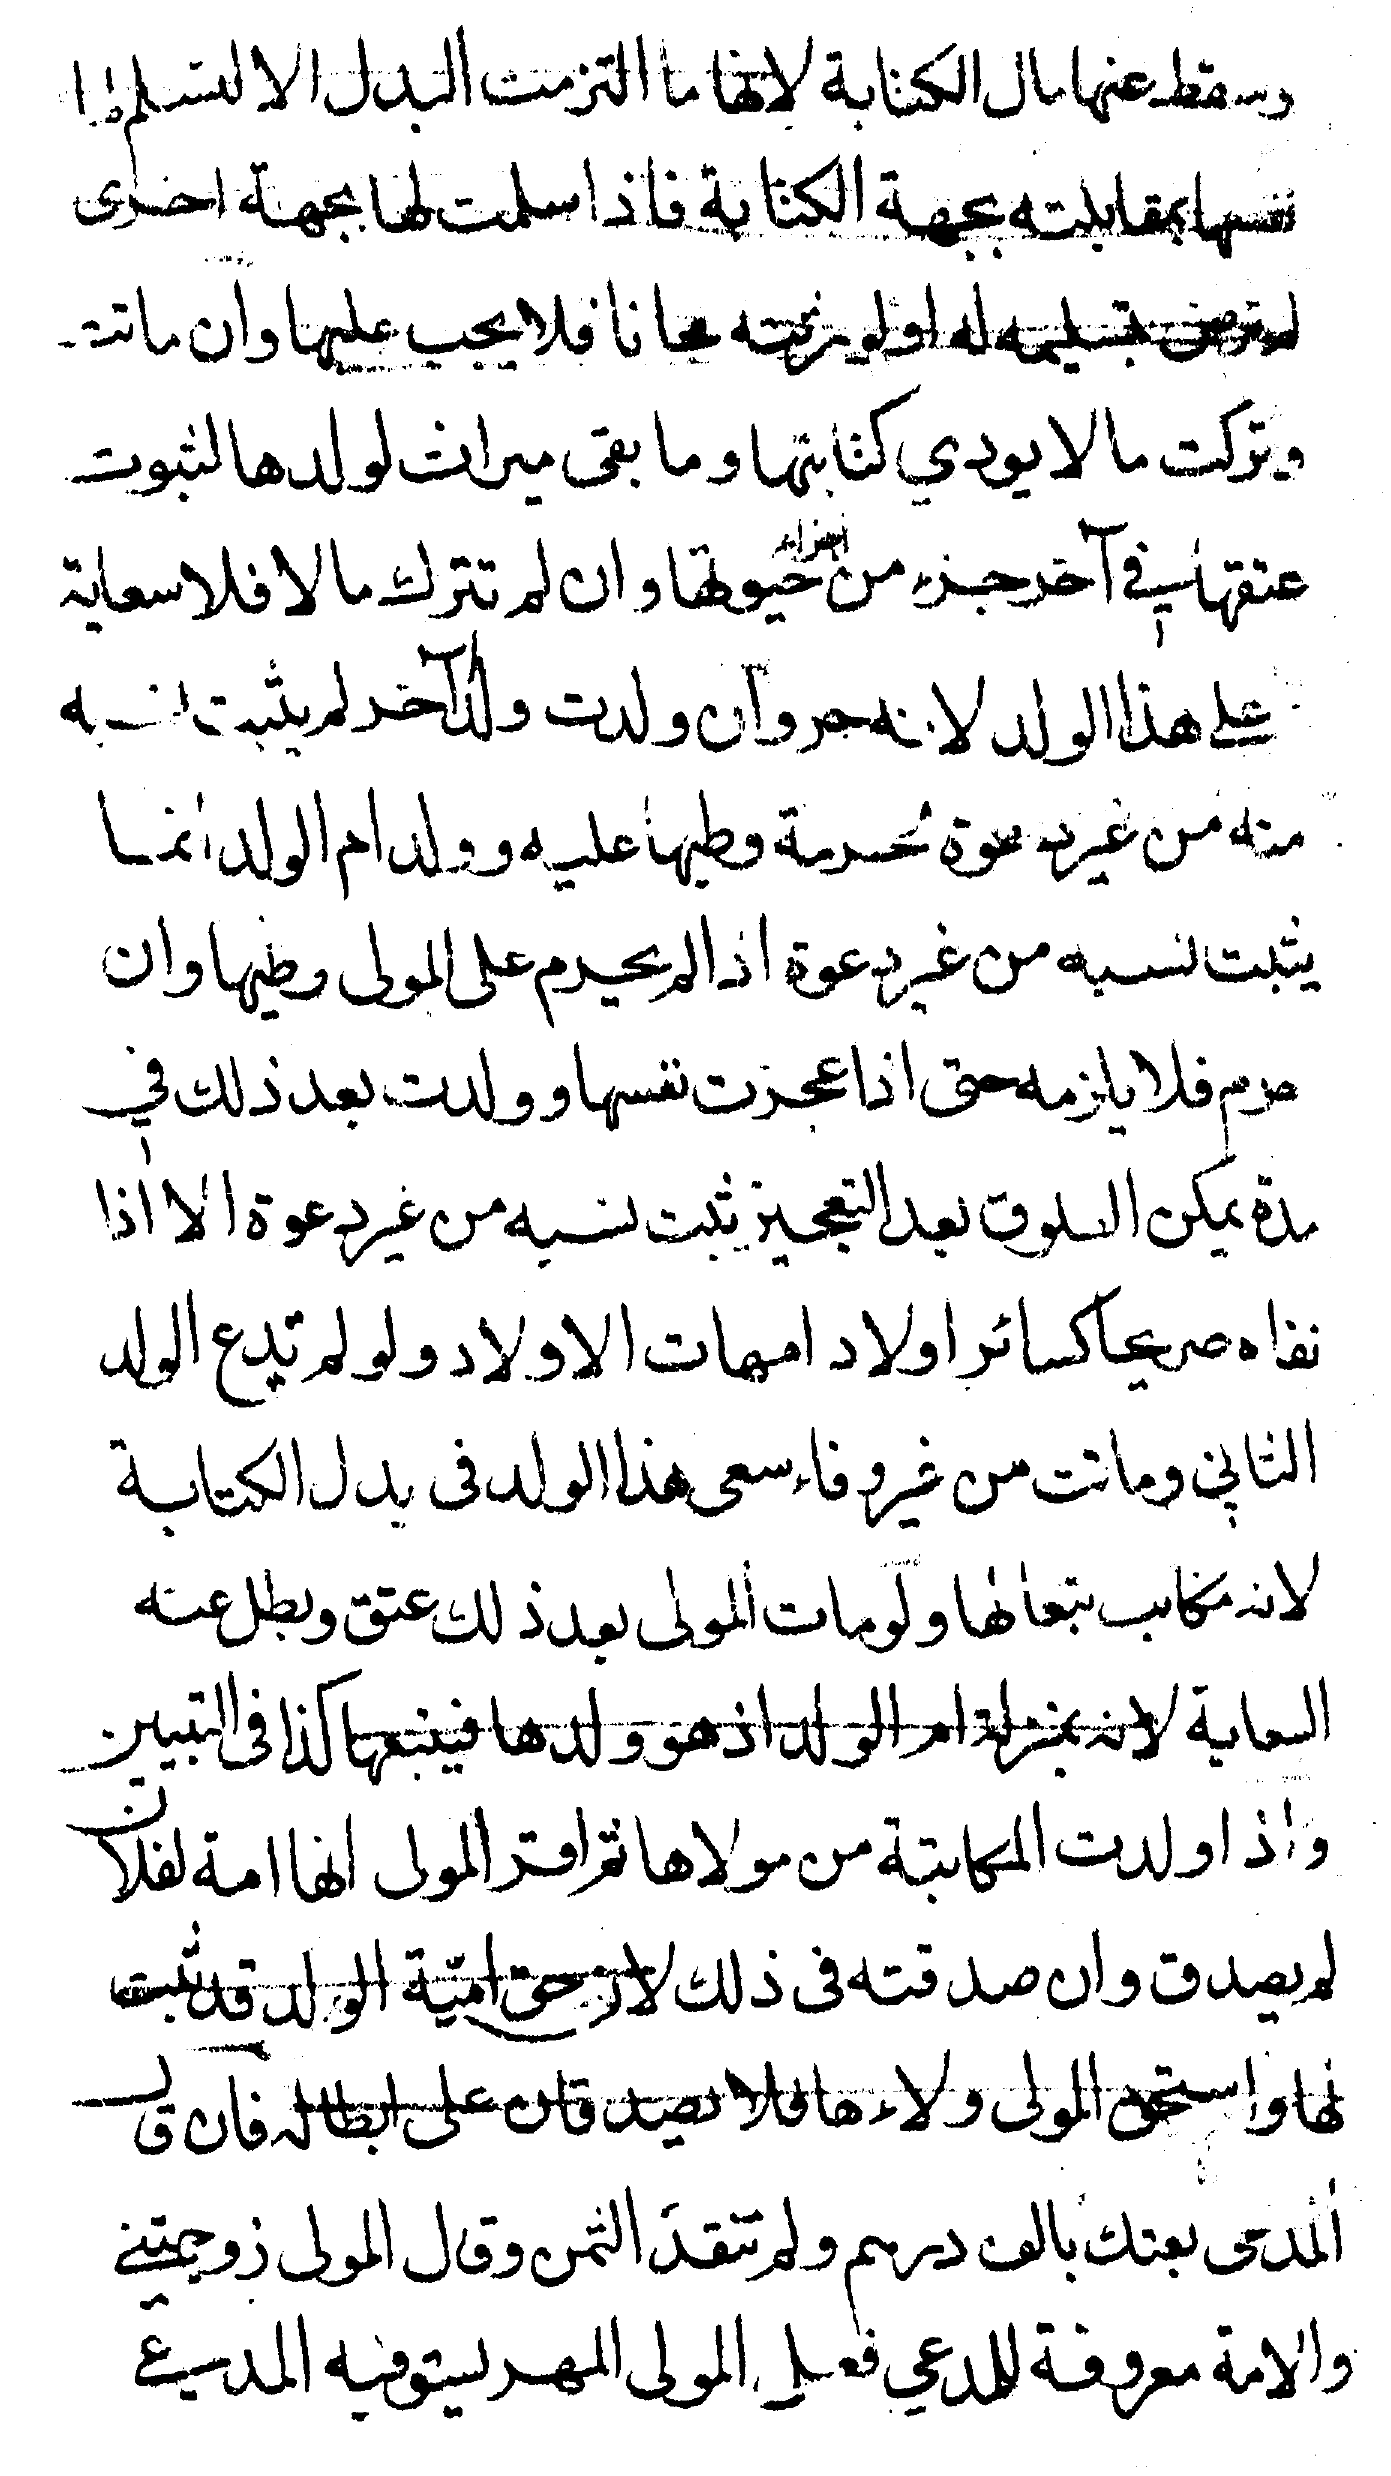 وسقط عنها مال الكتابة لانها ما التزمت البدل الا لتسلم لها
نفسها بمقابلته بجهة الكتابة فاذا سلمت لها بجهة اخرى
لم ترض بتسليمه له او لو رضيته مجانا فلا يجب عليها وان ماتت
وتركت مالا يودي كتابتها وما بقى ميراث لولدها لثبوت
عتقها في آخر جزء من اجزاء حيوتها وان لم تترك مالا فلا سعاية
على هذا الولد لانه حر وان ولدت ولدا آخر لم يثبت نسبه
منه من غير دعوة لحرمة وطيها عليه وولد ام الولد انما
يثبت نسبه من غير دعوة اذا لم يحرم على المولى وطيها وان
حرم فلا يلزمه حتى اذا عجزت نفسها وولدت بعد ذلك في
مدة يمكن العلوق بعد التعجيز ثبت نسبه من غير دعوة الا اذا
نفاه صريحا كسائر اولاد امهات الاولاد ولو لم تدع الولد
الثاني وماتت من غير وفاء سعى هذا الولد فى بدل الكتابة
لانه مكاتب تبعا لها ولو مات المولى بعد ذلك عتق وبطل عنه
السعاية لانه بمنزلة ام الولد اذ هو ولدها فيتبعها كذا فى التبيين
واذا ولدت المكاتبة من مولاها ثم اقر المولى انها امة لفلان
لم يصدق وان صدقته فى ذلك لان حق امية الولد قد ثبت
لها واستحق المولى ولاءها فلا يصدقان على ابطاله فان قال
المدعى بعتك بالف درهم ولم تنقد الثمن وقال المولى زوجتنى
والامة معروفة للمدعي فعلى المولى المهر يستوفيه المدعي